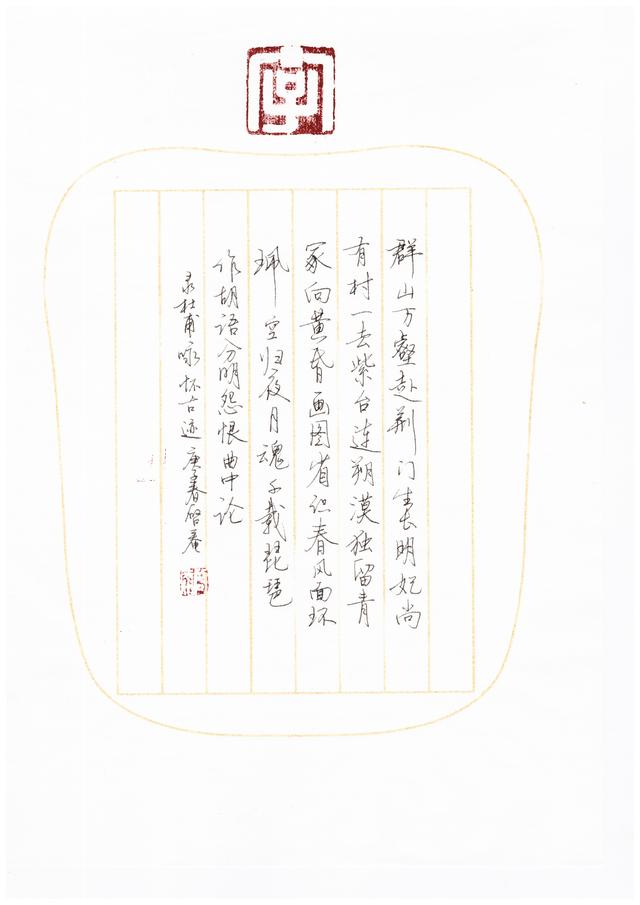 群山万壑赴荆门生长明妃尚
有村一去紫台连朔漠独留青
冢向黄昏画图省识春风面环
珮空归夜月魂千载琵琶
作胡语分明怨恨曲中论
录杜甫咏怀古迹庚春启菴